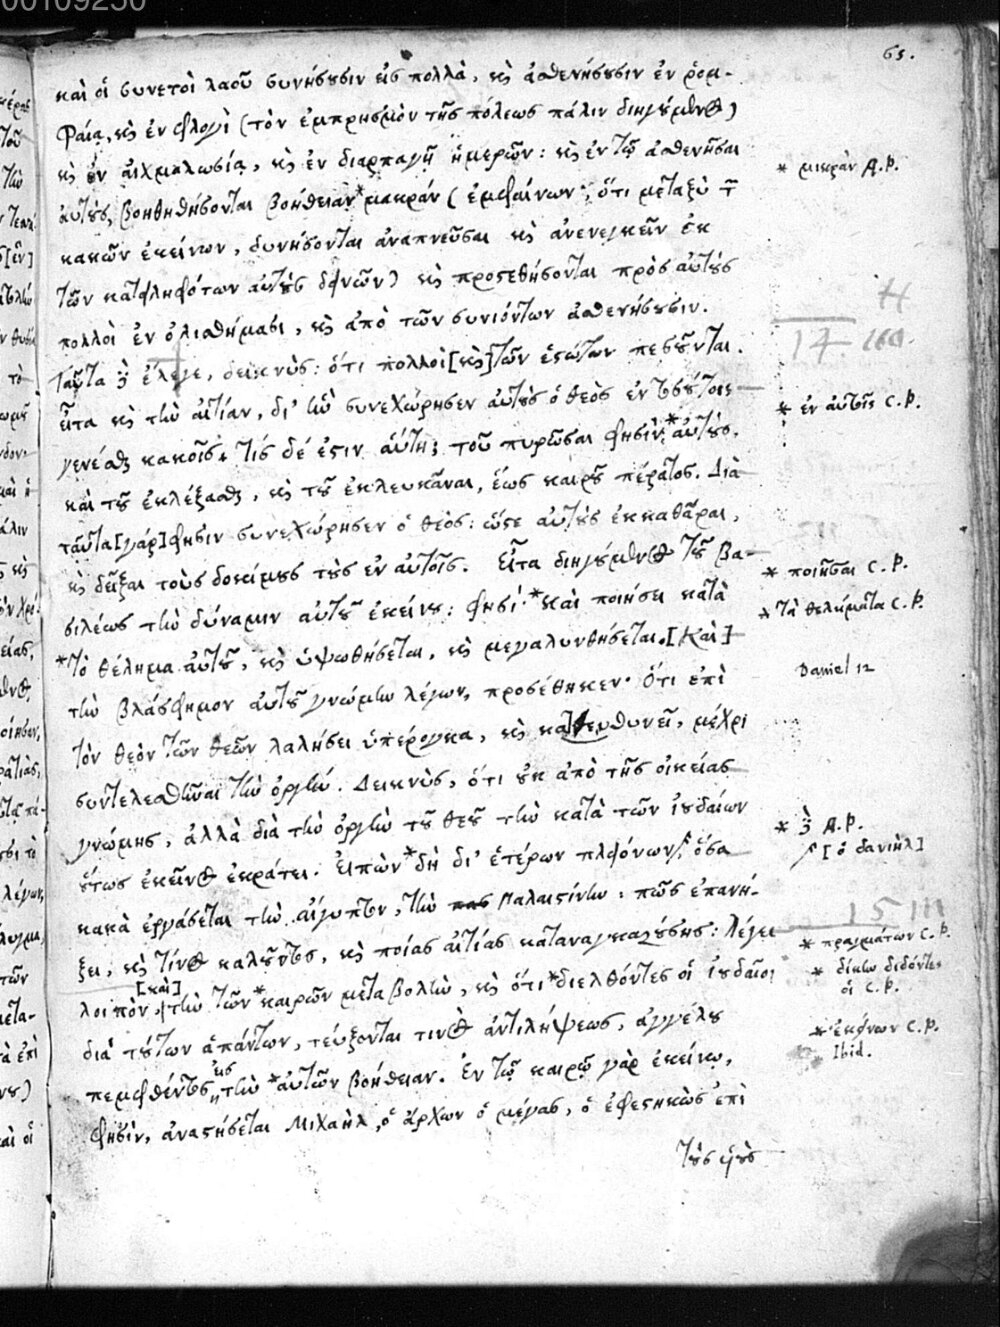 00109250
65.
καὶ οἱ συνετοὶ λαοῦ συνήσουσιν εἰς πολλὰ, κ̀ ἀσθενήσουσιν ἐν ῥομ-
φαίᾳ, κ̀ ἐν φλογὶ (τὸν ἐμπρησμὸν τῆς πόλεως πάλιν διηγούμενος)
κ̀ ἐν αἰχμαλωσίᾳ, κ̀ ἐν διαρπαγῇ ἡμερῶν: κ̀ ἐν τῷ ἀσθενῆσαι
* μικρὰν Α.Ρ.
αὐτοὺς, βοηθηθήσονται βοήθειαν *μακράν (ἐμφαίνων, ὅτι μεταξὺ τ̃
κακῶν ἐκείνων, δυνήσονται ἀναπνεῦσαι κ̀ ἀνενεγκεῖν ἐκ
τῶν κατειληφότων αὐτοὺς δεινῶν) κ̀ προστεθήσονται πρὸς αὐτοὺς
πολλοὶ ἐν ὀλισθήμασι, κ̀ ἀπὸ τῶν συνιόντων ἀσθενήσουσιν.
Ταῦτα δὲ ἔλεγε, δεικνὺς: ὅτι πολλοὶ [κ̀] τῶν ἑστώτων πεσοῦνται.
εἶτα κ̀ τὴν αἰτίαν, δι' ἣν συνεχώρησεν αὐτοὺς ὁ θεὸς ἐν τοσούτοις
* ἐν αὐτοῖς C.P.
γενέσθαι κακοῖς. τίς δέ ἐστιν αὕτη; τοῦ πυρῶσαι φησὶν *αὐτοὺς,
καὶ τοῦ ἐκλέξασθαι, κ̀ τοῦ ἐκλευκᾶναι, ἕως καιροῦ πέρατος. Διὰ
ταῦτα [γάρ] φησιν συνεχώρησεν ὁ θεὸς: ὥστε αὐτοὺς ἐκκαθᾶραι,
κ̀ δεῖξαι τοὺς δοκίμους τοὺς ἐν αὐτοῖς. Εἶτα διηγούμενος τοῦ βα-
* ποιῆσαι C.P.
σιλέως τὴν δύναμιν αὐτοῦ ἐκείνου: φησί *καὶ ποιήσει κατὰ
* τὰ θελήματα C.P.
*τὸ θέλημα αὐτοῦ, κ̀ ὑψωθήσεται, κ̀ μεγαλυνθήσεται. [Καὶ]
Daniel 12
τὴν βλάσφημον αὐτοῦ γνώμην λέγων, προσέθηκεν. Ὅτι ἐπὶ
τὸν θεὸν τῶν θεῶν λαλήσει ὑπέρογκα, κ̀ κατευθυνεῖ, μέχρι
συντελεσθῆναι τὴν ὀργήν. Δεικνὺς, ὅτι οὐκ ἀπὸ τῆς οἰκείας
γνώμης, ἀλλὰ διὰ τὴν ὀργὴν τοῦ θεοῦ τὴν κατὰ τῶν ἰουδαίων
* δὲ Α.Ρ.
οὕτως ἐκεῖνος ἐκράτει. Εἰπὼν *δὴ δι' ἑτέρων πλειόνων, ὅσα
[ὁ δανιὴλ]
κακὰ ἐργάσεται τὴν αἴγυπτον, τὴν Παλαιστίνην: πῶς ἐπανή-
ξει, κ̀ τίνος καλοῦντος, κ̀ ποίας αἰτίας καταναγκαζούσης: λέγει
* πραγμάτων C.P.
λοιπὸν [καὶ] τὴν τῶν *καιρῶν μεταβολὴν, κ̀ ὅτι *διελθόντες οἱ ἰουδαῖοι
* δίκην διδόντες
οἱ C.P.
διὰ τούτων ἁπάντων, τεύξονται τινὸς ἀντιλήψεως, ἀγγέλου
* ἐκείνων C.P.
Ibid.
πεμφθέντος εἰς τὴν *αὐτῶν βοήθειαν. Ἐν τῷ καιρῷ γὰρ ἐκείνῳ,
φησὶν, ἀναστήσεται Μιχαὴλ, ὁ ἄρχων ὁ μέγας, ὁ ἐφεστηκὼς ἐπὶ
τοὺς υἱοὺς